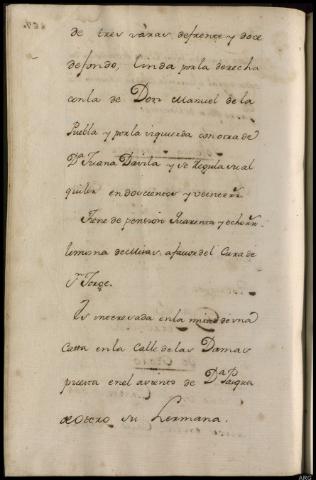 de tres varas de frente y doce
de fondo, linda por la derecha
con la de Don Manuel de la
Puebla y por la izquierda con otra de
D.ª Juana Davila y se regula su al
quiler en doscientos y veinte r.s
Tiene de pension Quarenta y ocho r.s
limosna de Misas, a favor del Cura de
S.n Jorge.
Es interesada en la mitad de una
Casa en la Calle de las Damas
puesta en el asiento de D.ª
de Otero su Hermana.